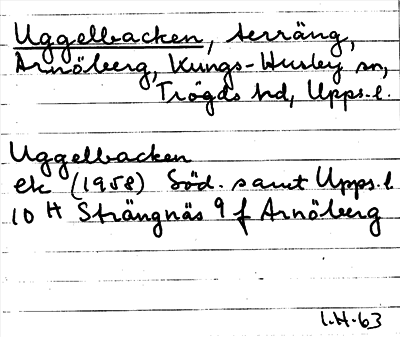 Uggelbacken, terräng,
Arnöberg, Kungs-Husby sn,
Trögds hd, Upps. l.
Uggelbacken
ek (1958) Söd. samt Upps. l
10 H Strängnäs 9 f Arnöberg
I.H.63